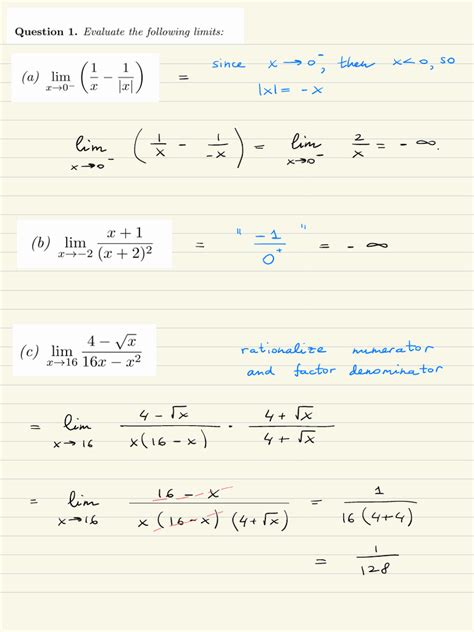 Question 1. Evaluate the following limits:
(a) lim x→0⁻ (1/x − 1/|x|) = since x → 0⁻, then x < 0, so
|x| = −x
lim x→0⁻ (1/x − 1/−x) = lim x→0⁻ 2/x = −∞.
(b) lim x→−2 (x + 1)/(x + 2)² = " −1/0⁺ " = −∞
(c) lim x→16 (4 − √x)/(16x − x²) rationalize numerator
and factor denominator
= lim x→16 (4 − √x)/(x(16 − x)) · (4 + √x)/(4 + √x)
= lim x→16 (16 − x)/(x(16 − x)(4 + √x)) = 1/(16(4+4))
= 1/128